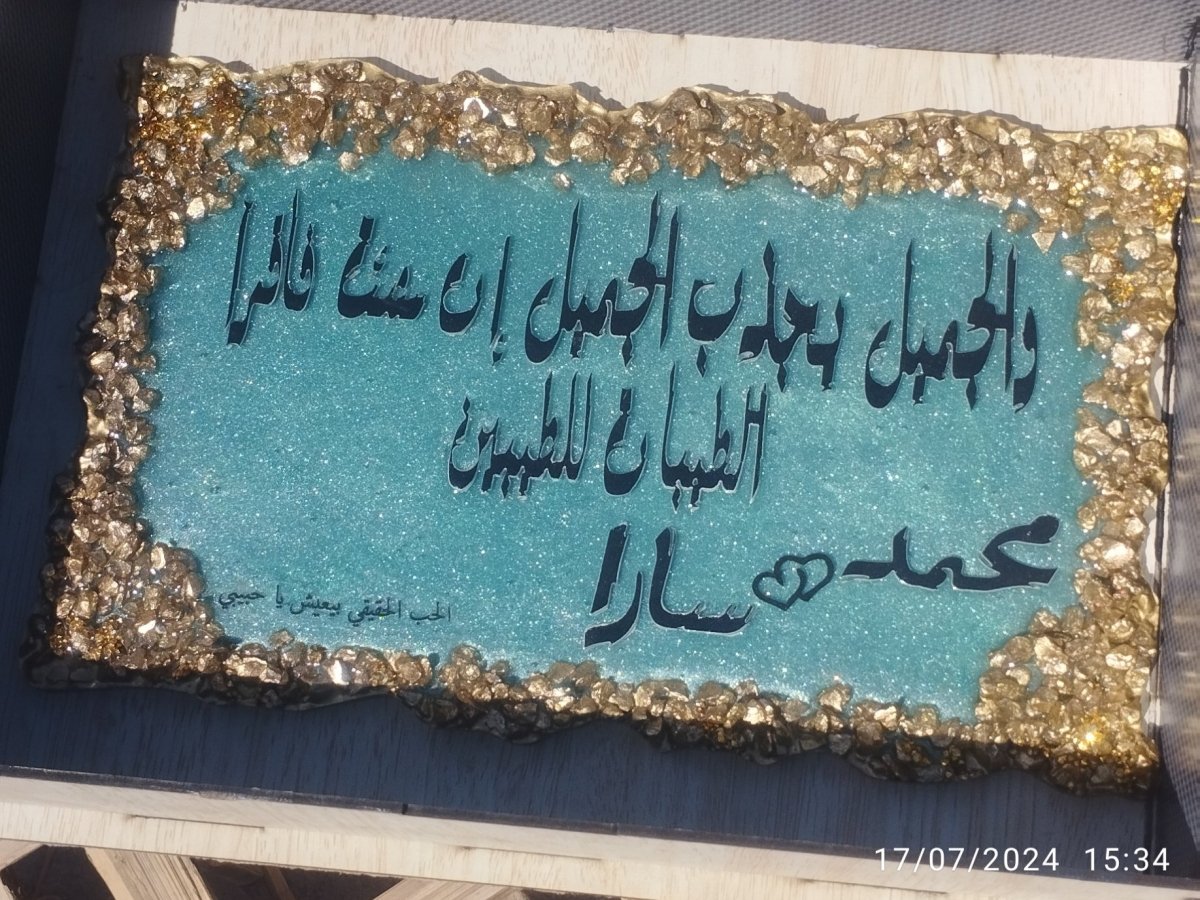 والجميل يجذب الجميل إن شئت فاقرا
الطيبات للطيبين
محمد سارا
الحب الحقيقي بيعيش يا حبيبي
17/07/2024 15:34